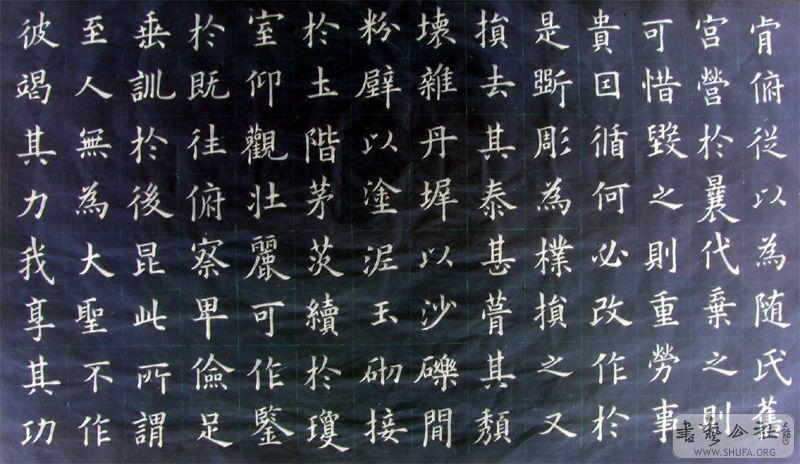 肯俯從以為随氏舊
宮營於曩代棄之則
可惜毀之則重勞事
貴因循何必改作於
是斲彫為樸損之又
損去其泰甚葺其頹
壞雜丹墀以沙礫間
粉壁以塗泥玉砌接
於土階茅茨續於瓊
室仰觀壯麗可作鑒
於既往俯察卑儉足
垂訓於後昆此所謂
至人無為大聖不作
彼竭其力我享其功
書藝公社
WWW.SHUFA.ORG